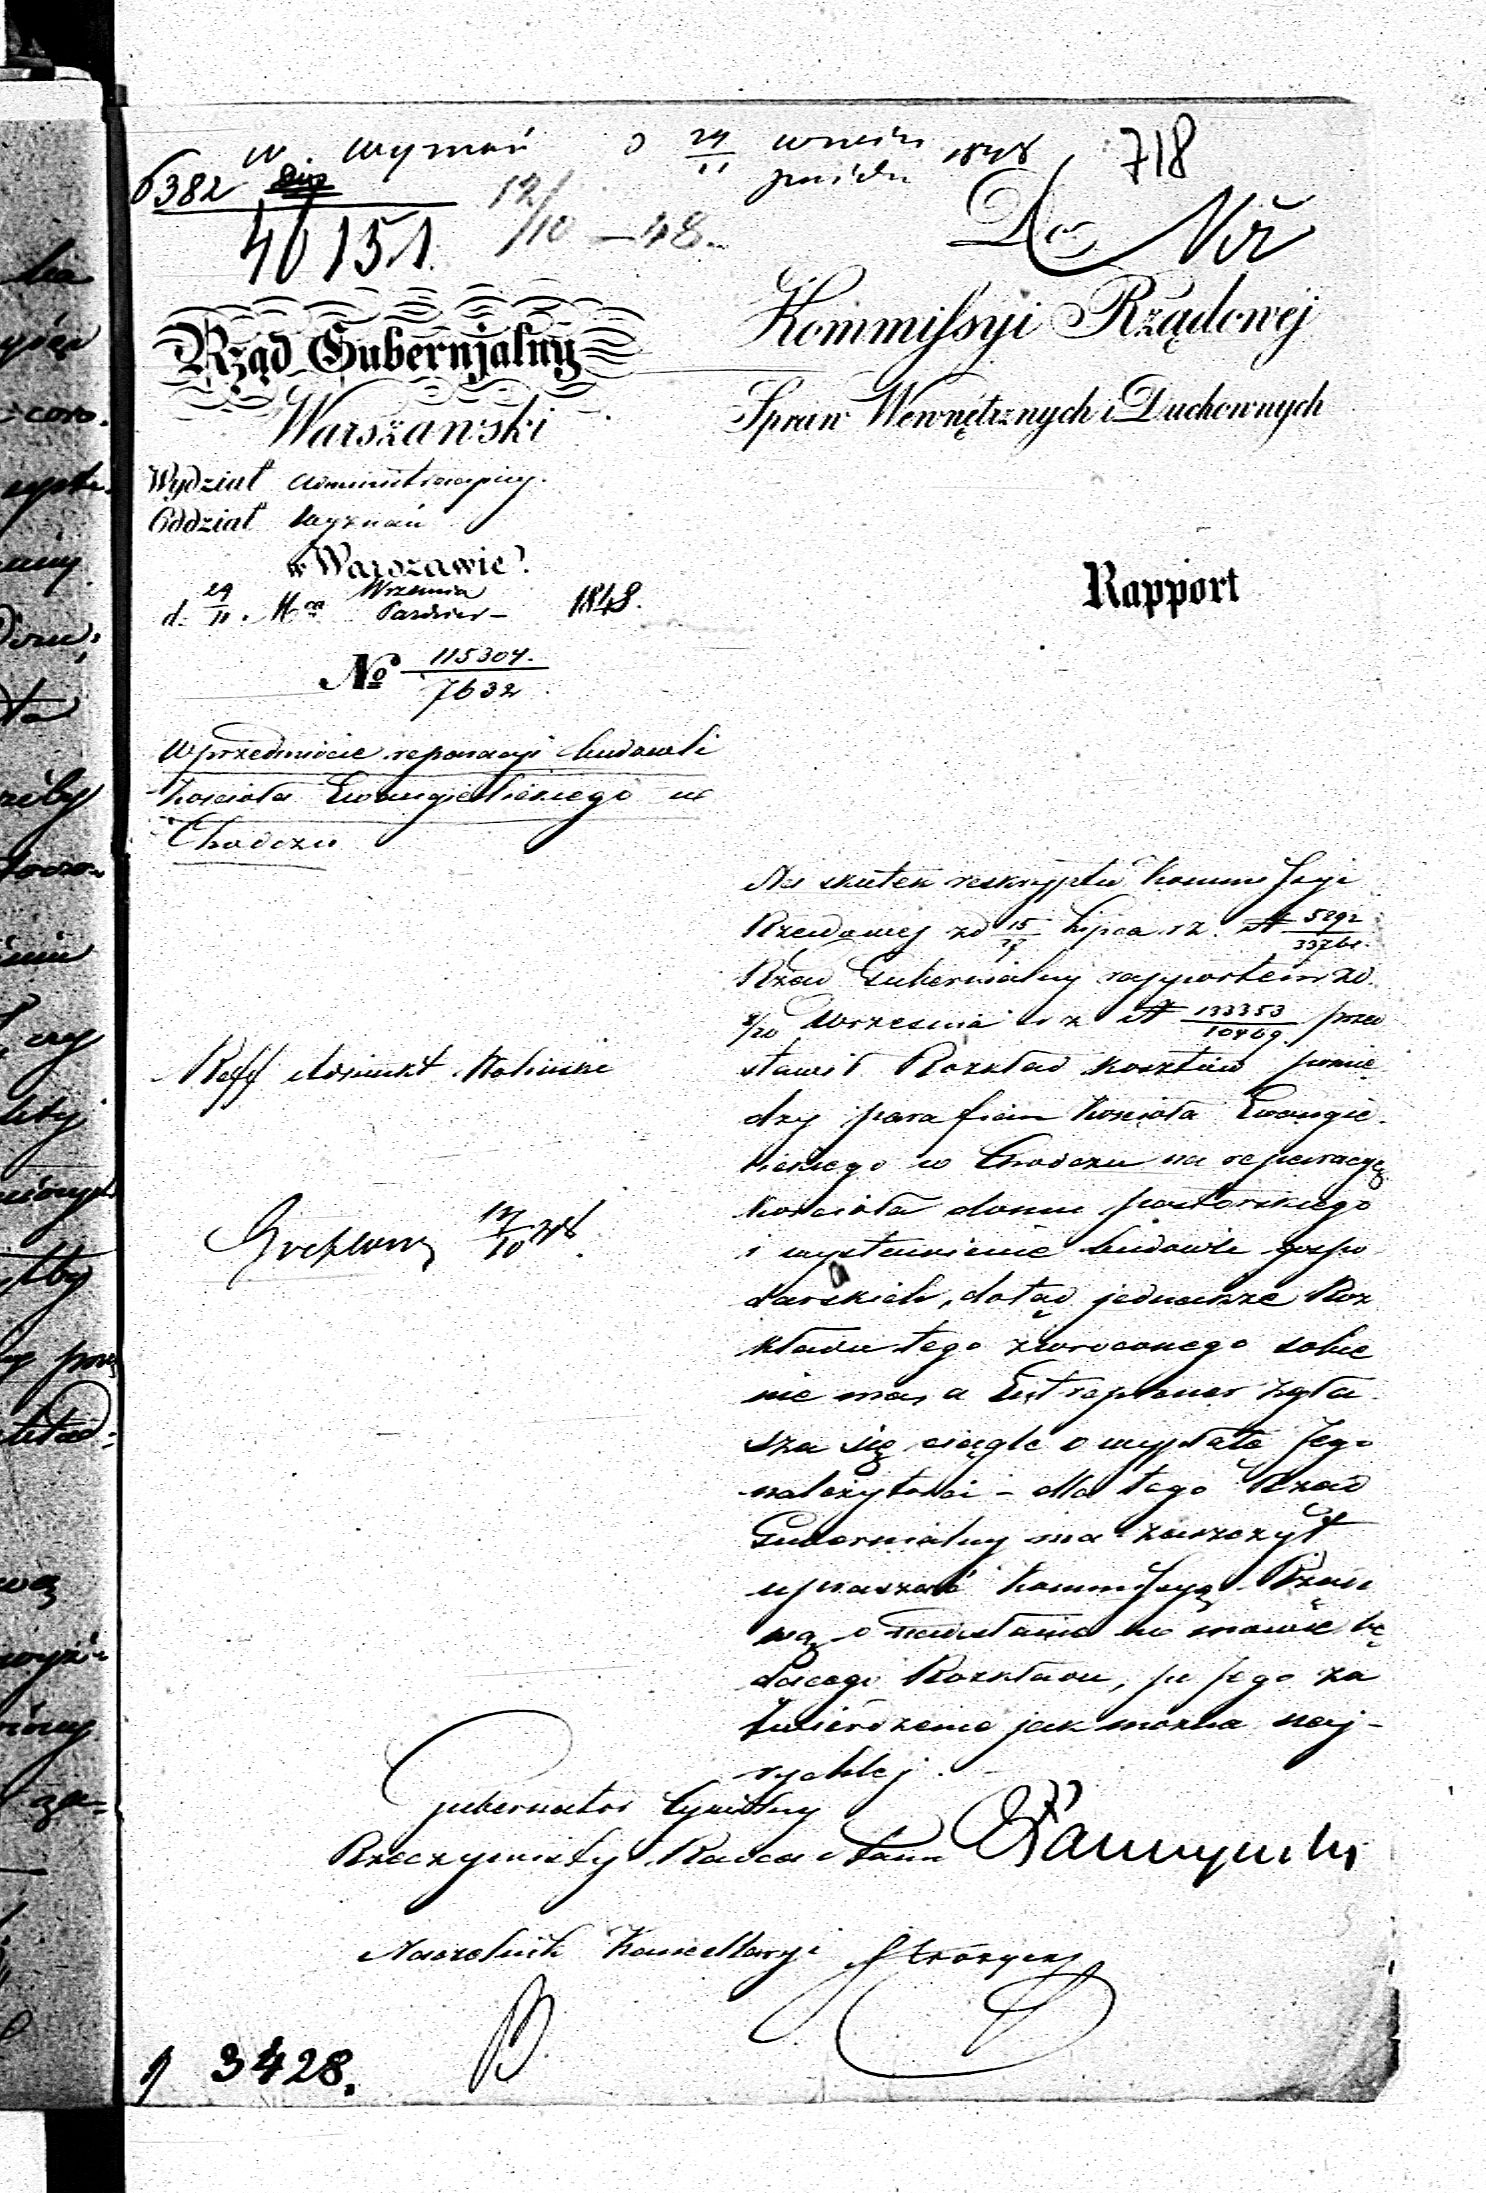 W. Wyznań d 29/11 Wrześn: Paździer 1848
718
6382
40151.
12/10 – 48.
Do
Kommissyi Rządowej
Spraw Wewnętrznych i Duchownych
Rząd Gubernjalny
Warszawski
Wydział Administracyjny.
Oddział Wyznań
w Warszawie
d. 29/11 Mca Września Paździer – 1848.
No 115304./7632
Rapport
W przedmiocie reparacyi budowli
Kościoła Ewangielickiego w
Chodczu
Na skutek reskryptu Kommissyi
Rządowej zd 15/27 Lipca r.b. N 5292/
Rząd Gubernialny rapportem zd.
8/20 Września r b N 133353/10469. przed
stawił Rozkład kosztów pomię
dzy parafian Kościoła Ewangie
lickiego w Chodczu na reparacyą
Kościoła domu pastorskiego
i wystawienie budowli gospo
darskich, dotąd jednakże Roz
kładu tego zwróconego sobie
nie ma, a Entreprener zgła
sza się ciągle o wypłatę Jego
należytości – dla tego Rząd
Gubernialny ma zaszczyt
upraszać Kommissyą Rządo
wą o nadesłanie w mowie bę
dącego Rozkładu, po Jego za
twierdzeniu jak można naj-
rychlej.
Reff Assiunkt
17/10 48
Gubernator Cywilny
Rzeczywisty Radca Stanu
Naczelnik Kancellaryi
3428.